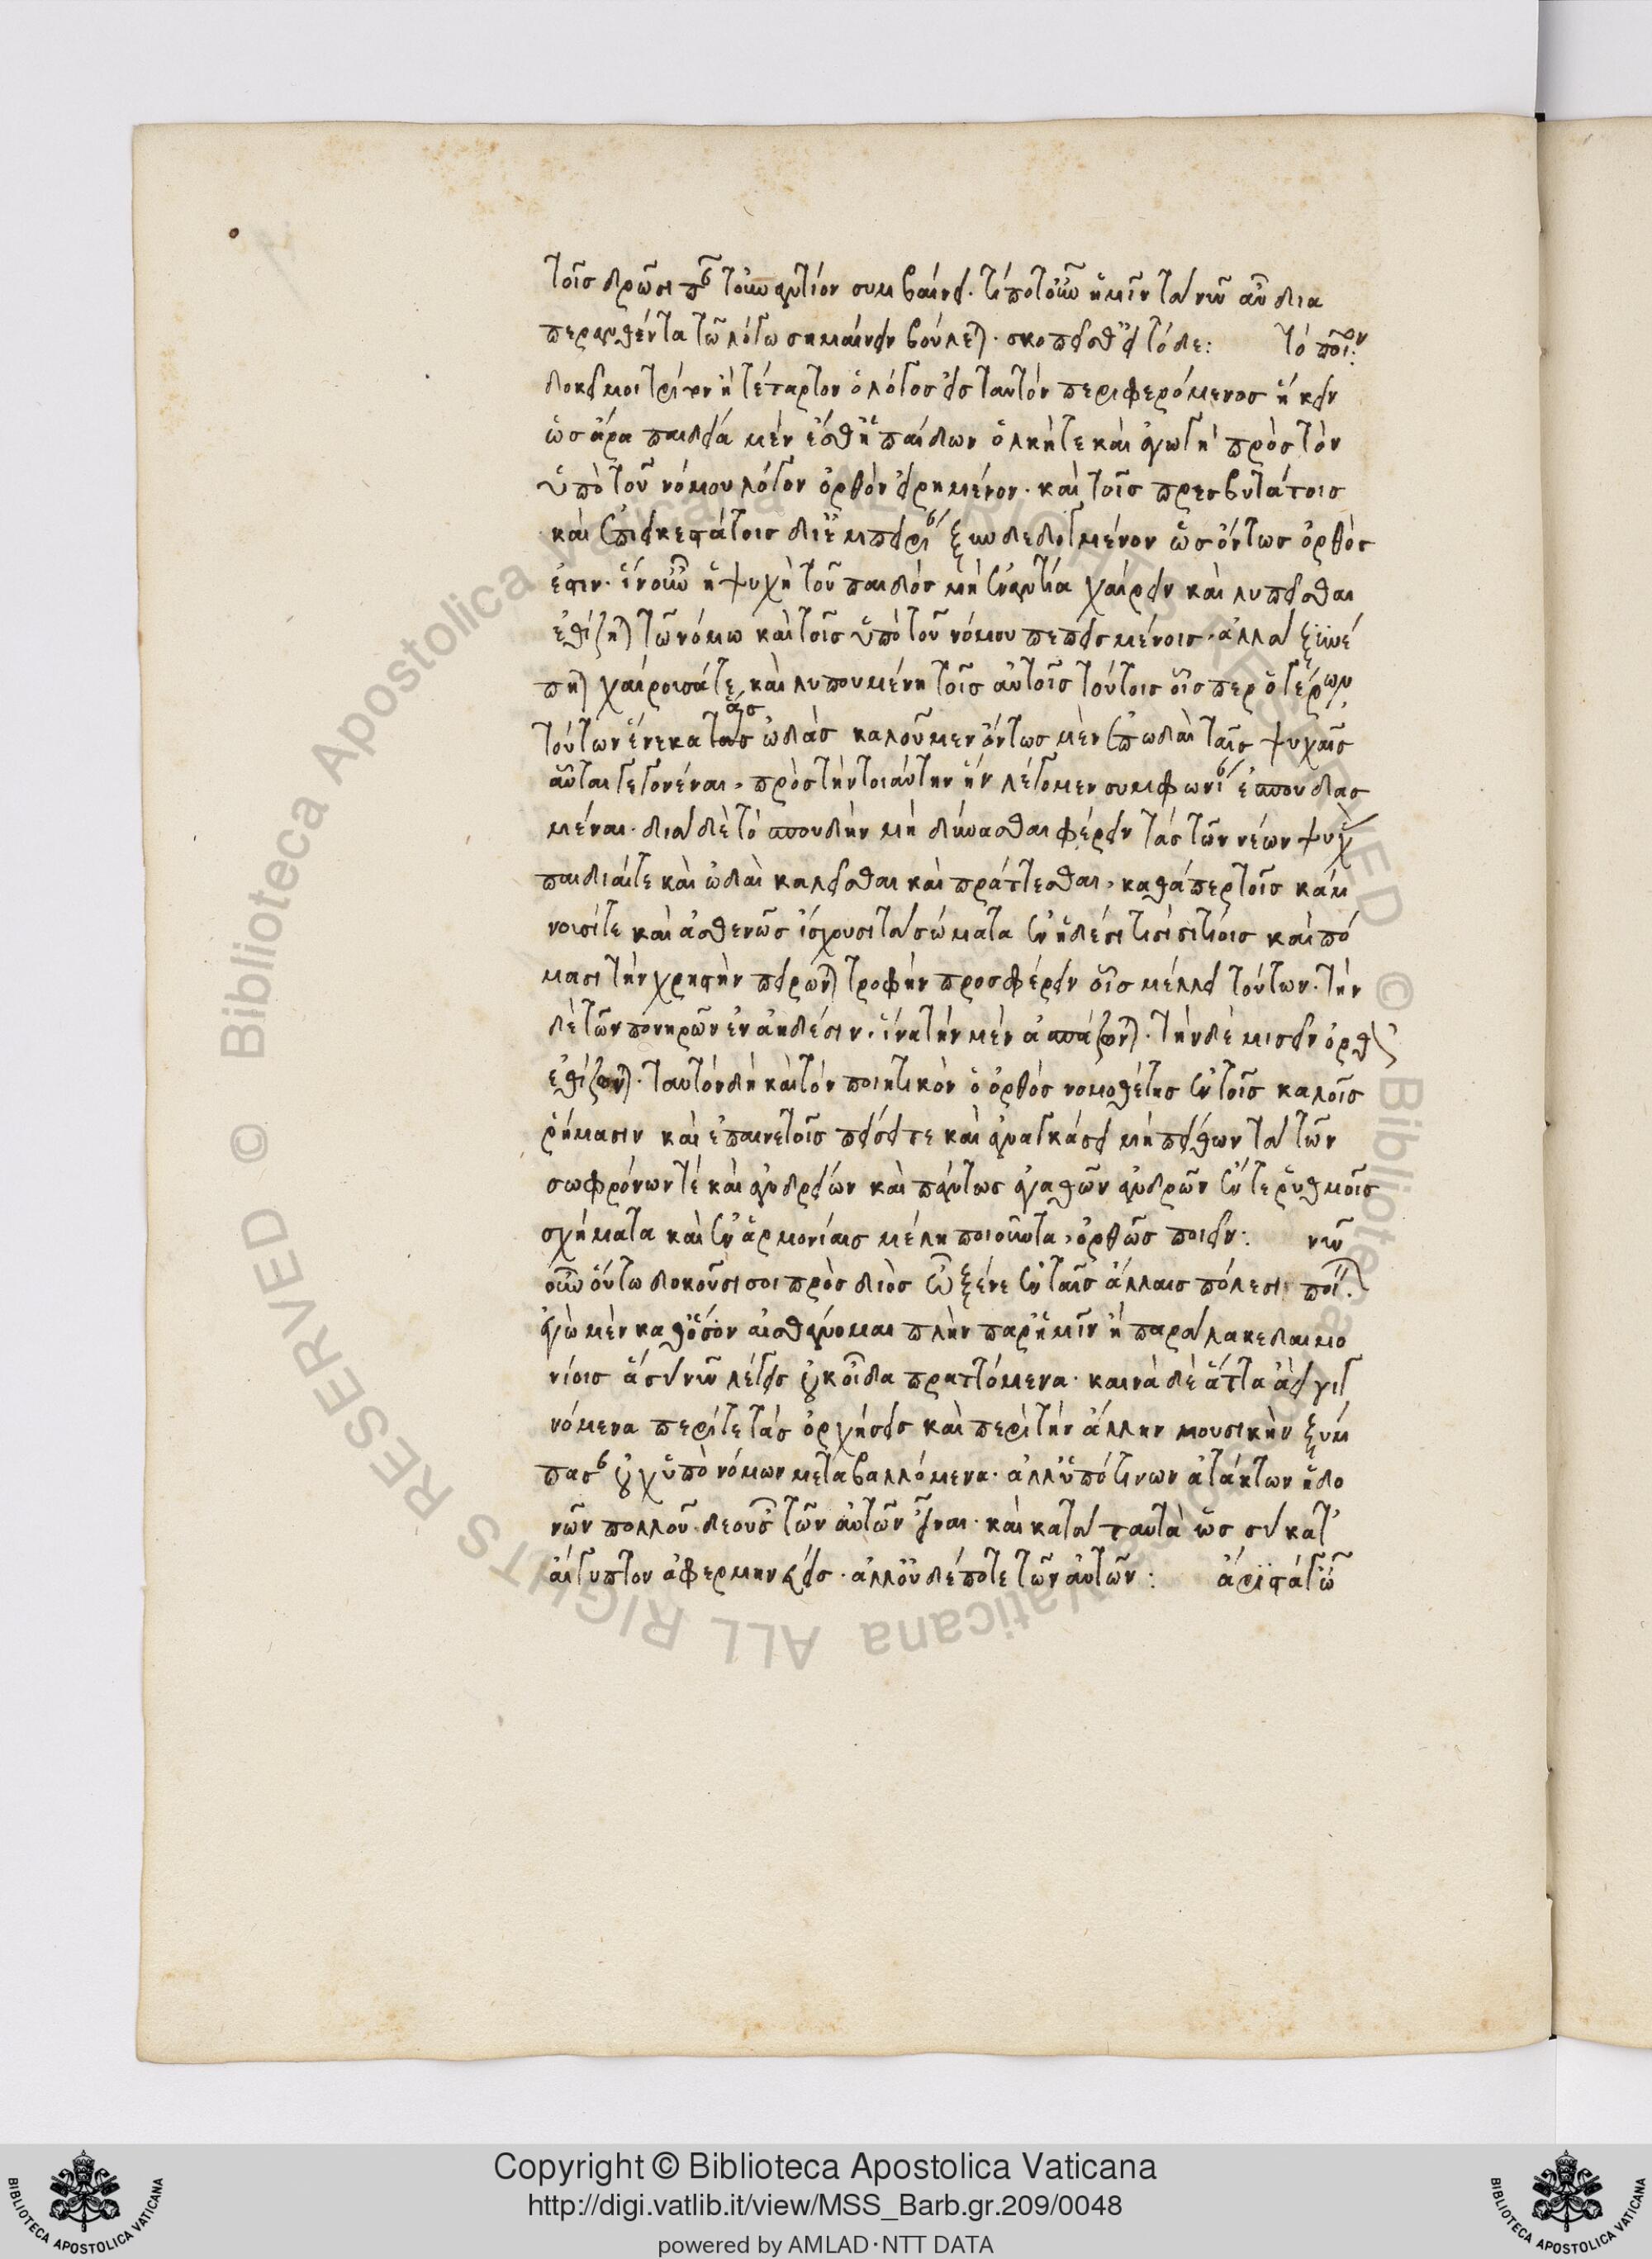 τοῖς δρῶσι πᾶν τοὐναντίον συμβαίνει. τί ποτ' οὖν ἡμῖν τὰ νῦν αὖ δια
περανθέντα τῷ λόγῳ σημαίνειν βούλεται. σκοπεῖσθ' εἰ τόδε: τὸ ποῖον:
δοκεῖ μοι τρίτον ἢ τέταρτον ὁ λόγος εἰς ταυτὸν περιφερόμενος ἥκειν
ὡς ἄρα παιδεία μέν ἐσθ' ἡ παίδων ὁλκή τε καὶ ἀγωγὴ πρὸς τὸν
ὑπὸ τοῦ νόμου λόγον ὀρθὸν εἰρημένον. καὶ τοῖς πρεσβυτάτοις
καὶ ἐπιεικεστάτοις δι' ἐμπειρίαν ξυνδεδογμένον ὡς ὄντως ὀρθός
ἐστιν. ἵν' οὖν ἡ ψυχὴ τοῦ παιδὸς μὴ ἐναντία χαίρειν καὶ λυπεῖσθαι
ἐθίζηται τῷ νόμῳ καὶ τοῖς ὑπὸ τοῦ νόμου πεπεισμένοις. ἀλλὰ ξυνέ
πηται χαίρουσά τε καὶ λυπουμένη τοῖς αὐτοῖς τούτοις οἷσπερ ὁ γέρων,
τούτων ἕνεκα τὰς ἃς ᾠδὰς καλοῦμεν ὄντως μὲν ἐπῳδαὶ ταῖς ψυχαῖς
αὗται γεγονέναι, πρὸς τὴν τοιαύτην ἣν λέγομεν συμφωνίαν ἐσπουδας
μέναι. διὰ δὲ τὸ σπουδὴν μὴ δύνασθαι φέρειν τὰς τῶν νέων ψυχὰς
παιδιαί τε καὶ ᾠδαὶ καλεῖσθαι καὶ πράττεσθαι, καθάπερ τοῖς κάμ
νουσί τε καὶ ἀσθενῶς ἴσχουσι τὰ σώματα ἐν ἡδέσι τισὶ σιτίοις καὶ πό
μασι τὴν χρηστὴν πειρῶνται τροφὴν προσφέρειν οἷς μέλλει τούτων. τὴν
δὲ τῶν πονηρῶν ἐν ἀηδέσιν. ἵνα τὴν μὲν ἀσπάζωνται. τὴν δὲ μισεῖν ὀρθῶς
ἐθίζωνται. ταυτὸν δὴ καὶ τὸν ποιητικὸν ὁ ὀρθὸς νομοθέτης ἐν τοῖς καλοῖς
ῥήμασιν καὶ ἐπαινετοῖς πείσει τε καὶ ἀναγκάσει μὴ πείθων τὰ τῶν
σωφρόνων τὲ καὶ ἀνδρείων καὶ πάντως ἀγαθῶν ἀνδρῶν ἔν τε ῥυθμοῖς
σχήματα καὶ ἐν ἁρμονίαις μέλη ποιοῦντα, ὀρθῶς ποιεῖν: νῦν
οὖν οὕτω δοκοῦσί σοι πρὸς διὸς ὦ ξένε ἐν ταῖς ἄλλαις πόλεσι ποιεῖν.
ἐγὼ μὲν καθ' ὅσον αἰσθάνομαι πλὴν παρ' ἡμῖν ἢ παρὰ λακεδαιμο
νίοις ἃ σὺ νῦν λέγεις οὐκ οἶδα πραττόμενα. καινὰ δὲ ἄττα ἀεὶ γιγ
νόμενα περί τε τὰς ὀρχήσεις καὶ περὶ τὴν ἄλλην μουσικὴν ξύμ
πασαν οὐχ ὑπὸ νόμων μεταβαλλόμενα. ἀλλ' ὑπό τινων ἀτάκτων ἡδο
νῶν πολλοῦ δεουσῶν τῶν αὐτῶν εἶναι. καὶ κατὰ ταυτὰ ὡς σὺ κατ'
αἴγυπτον ἀφερμηνεύεις. ἀλλ' οὐδέποτε τῶν αὐτῶν: ἄριστά γ' ὦ